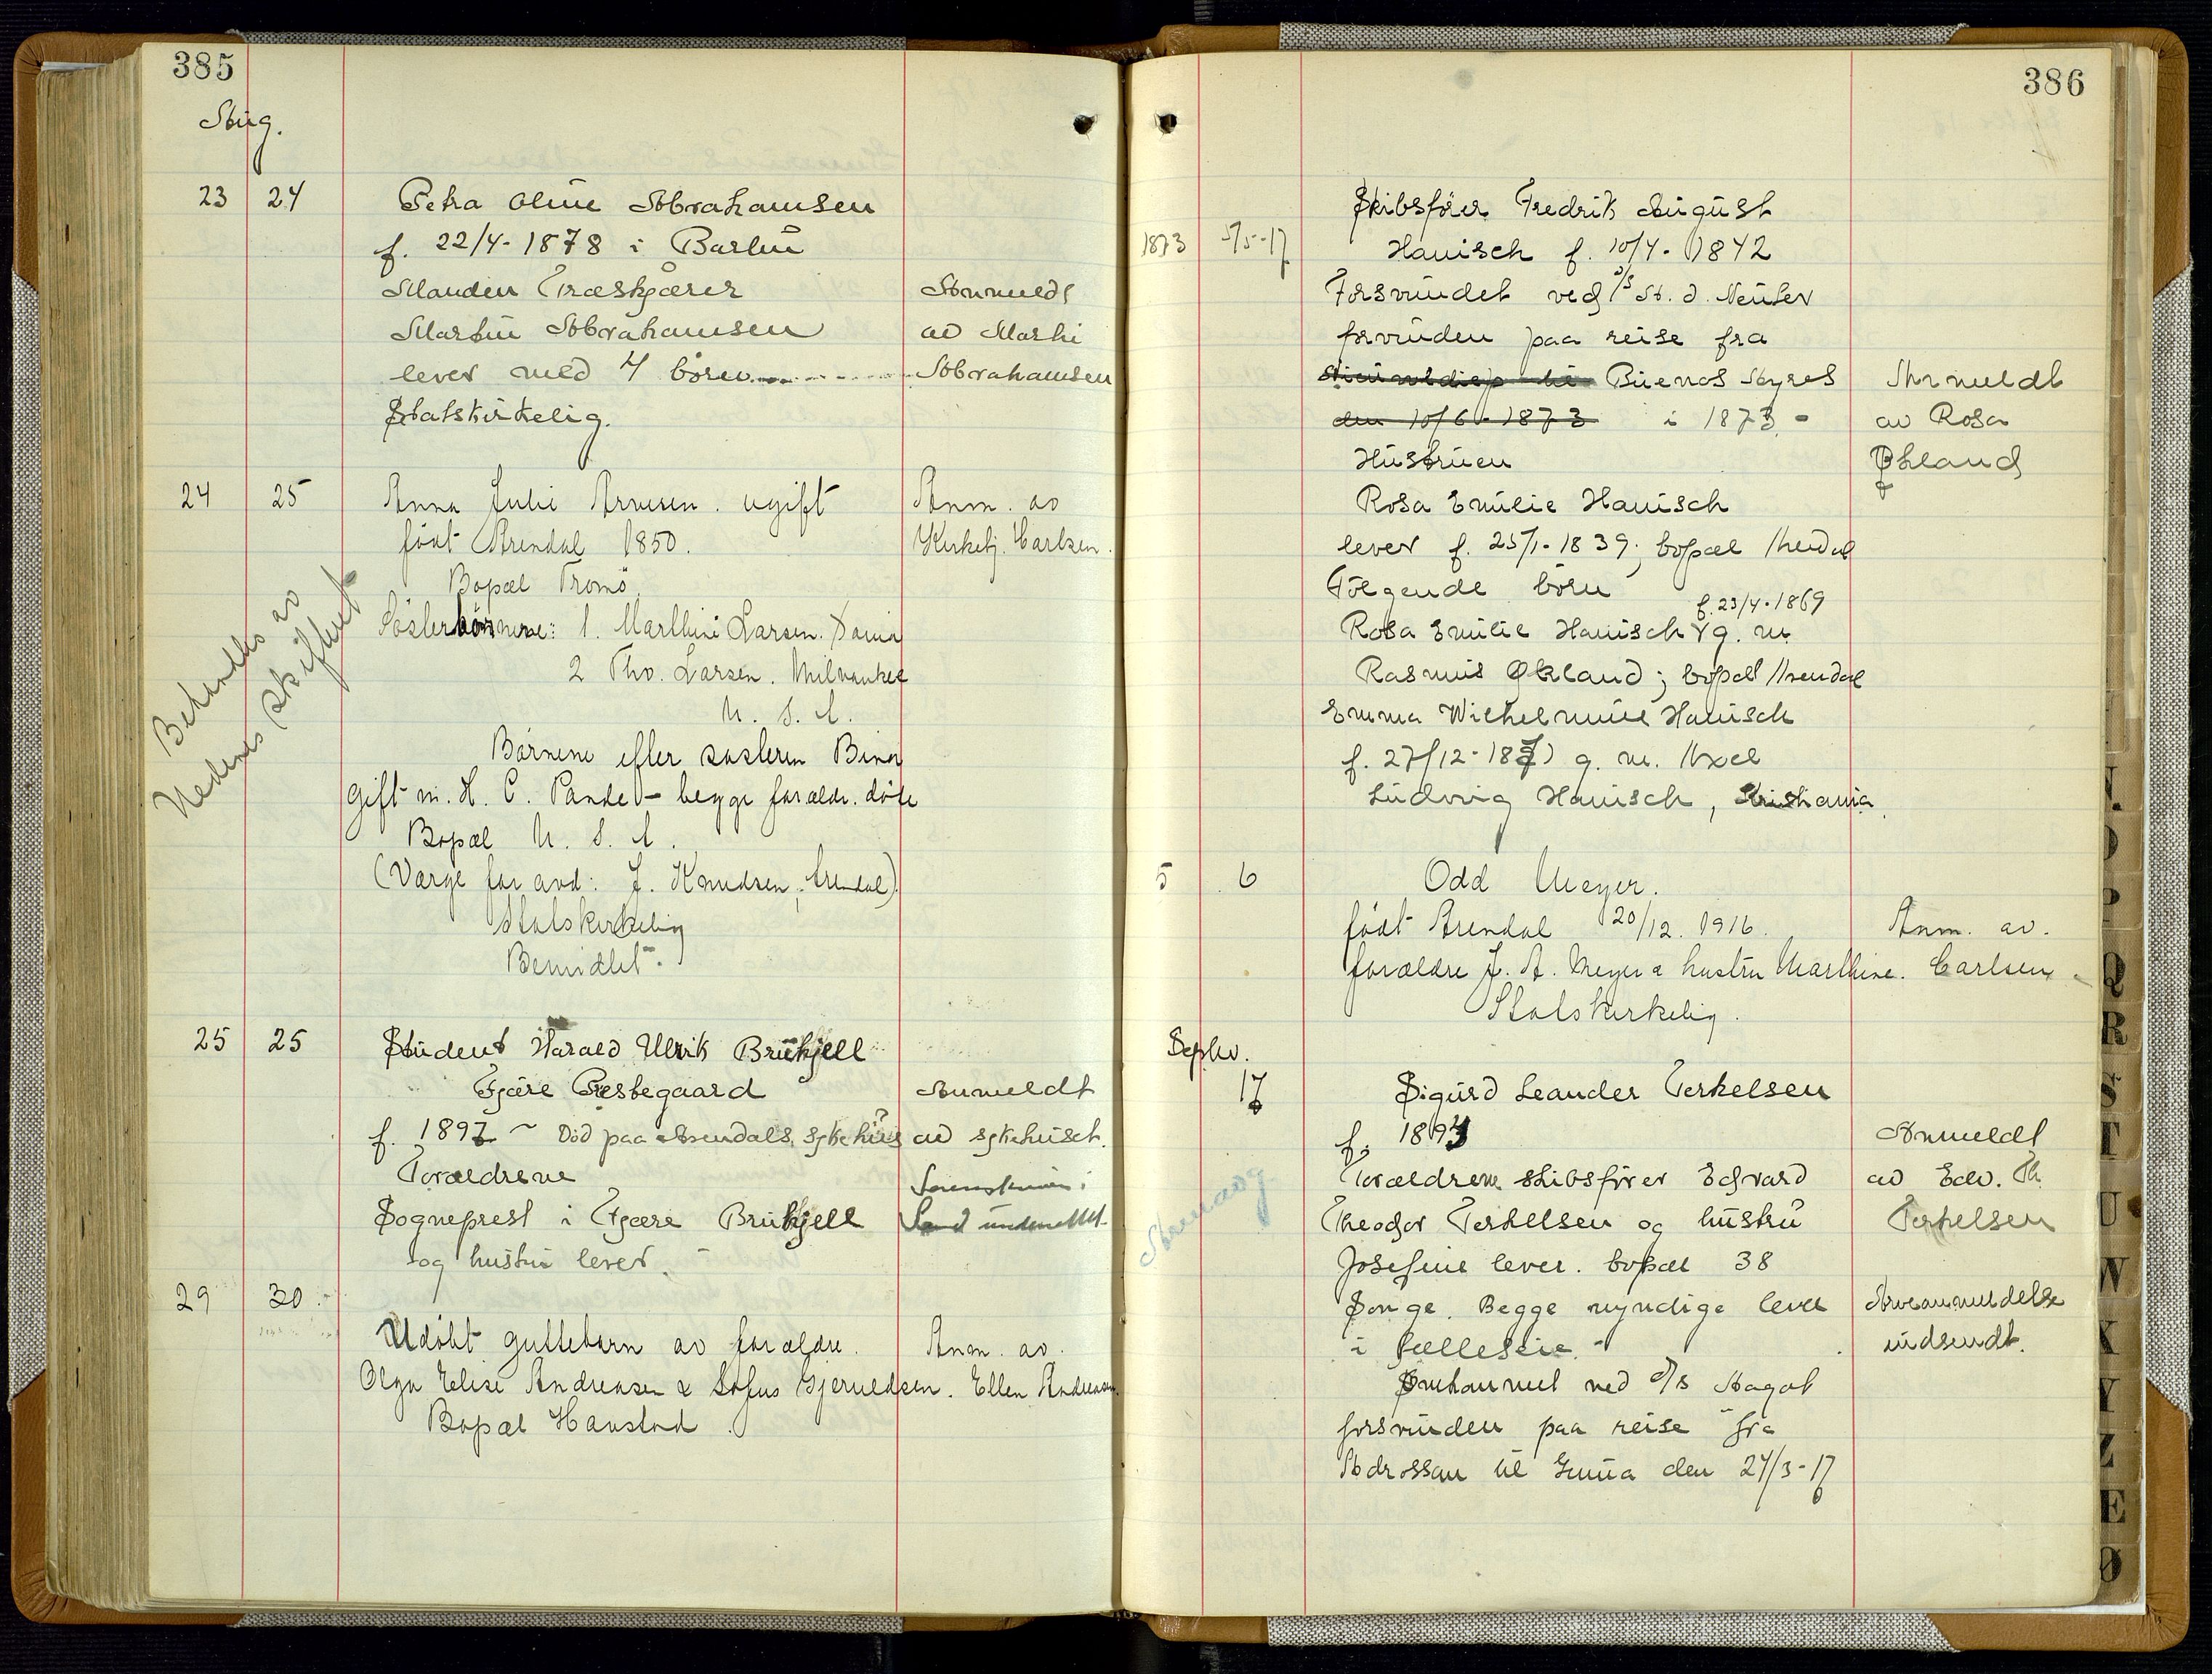 385
Aug.
23 24 Petra Oline Abrahamsen
f. 22/4-1878 i Barbu
Manden Træskjærer
Anmeldt
Martin Abrahamsen
av Martin
lever med 4 börn
Abrahamsen
Statskirkelig.
24 25 Anna Julie Arnesen. ugift
Anm. av
födt Arendal 1850.
Kirketj. Carlsen.
Bopæl Tromö.
Behandles av
Nedenes skifteret
Søsterbörnene: 1. Marthini Larsen.
2 Thv. Larsen. Milvaukee
U. S. A.
Børnene efter søsteren Bina
gift m. H. C. Pande - begge forældr. døde
Bopæl U. S. A.
(Værge for avd: J. Knudsen, Arendal)
Statskirkelig
Bemidlet.
25 25 Student Harald Ulrik Brükjell
Fjære Prestegaard
Anmeldt
f. 1897 ~ Död paa Arendals sykehüs
av sykehuset.
Forældrene
Sorenskriver i
Sogneprest i Fjære Brükjell
Sand underrettet.
og hustru lever. -
29 30.
Udöbt guttebarn av forældre.
Anm. av.
Olga Elise Andreasen & Sofus Gjeruldsen.
Ellen Andreasen.
Bopæl Havstad.
386
Skibsförer Fredrik August
1873 5/5-17 Hanisch f. 10/4-1842
Forsvundet ved
forvunden paa reise fra
Buenos Ayres
Anmeldt
den 10/6-1873 i 1873 -
av Rosa
Hustruen
Økland
Rosa Emilie Hanisch
lever f. 25/1-1839; bopæl Arendal
Følgende börn
f. 23/4-1869
Rosa Emilie Hanisch g. m.
Rasmus Økland; bopæl Arendal
Emma Wilhelmine Hanisch
f. 27/12-187 g. m. Axel
Ludvig Hanisch, Kristiania.
5 6 Odd Meyer.
födt Arendal 20/12. 1916.
Anm. av.
forældre J. A. Meyer & hustru Marthine.
Carlsen.
Statskirkelig.
Septbr.
17 Sigurd Leander Terkelsen
f. 1893
Anmeldt
Forældrene skibsfører Edvard
av Edv. Th.
Theodor Terkelsen og hustru
Terkelsen
Josefine lever. bopæl 38
Songe. Begge myndige lever
Arveanmeldelse
i fælleseie. -
indsendt.
Omkommet ved d/s
forsvunden paa reise fra
Ardrossan til Genua den 24/3-17